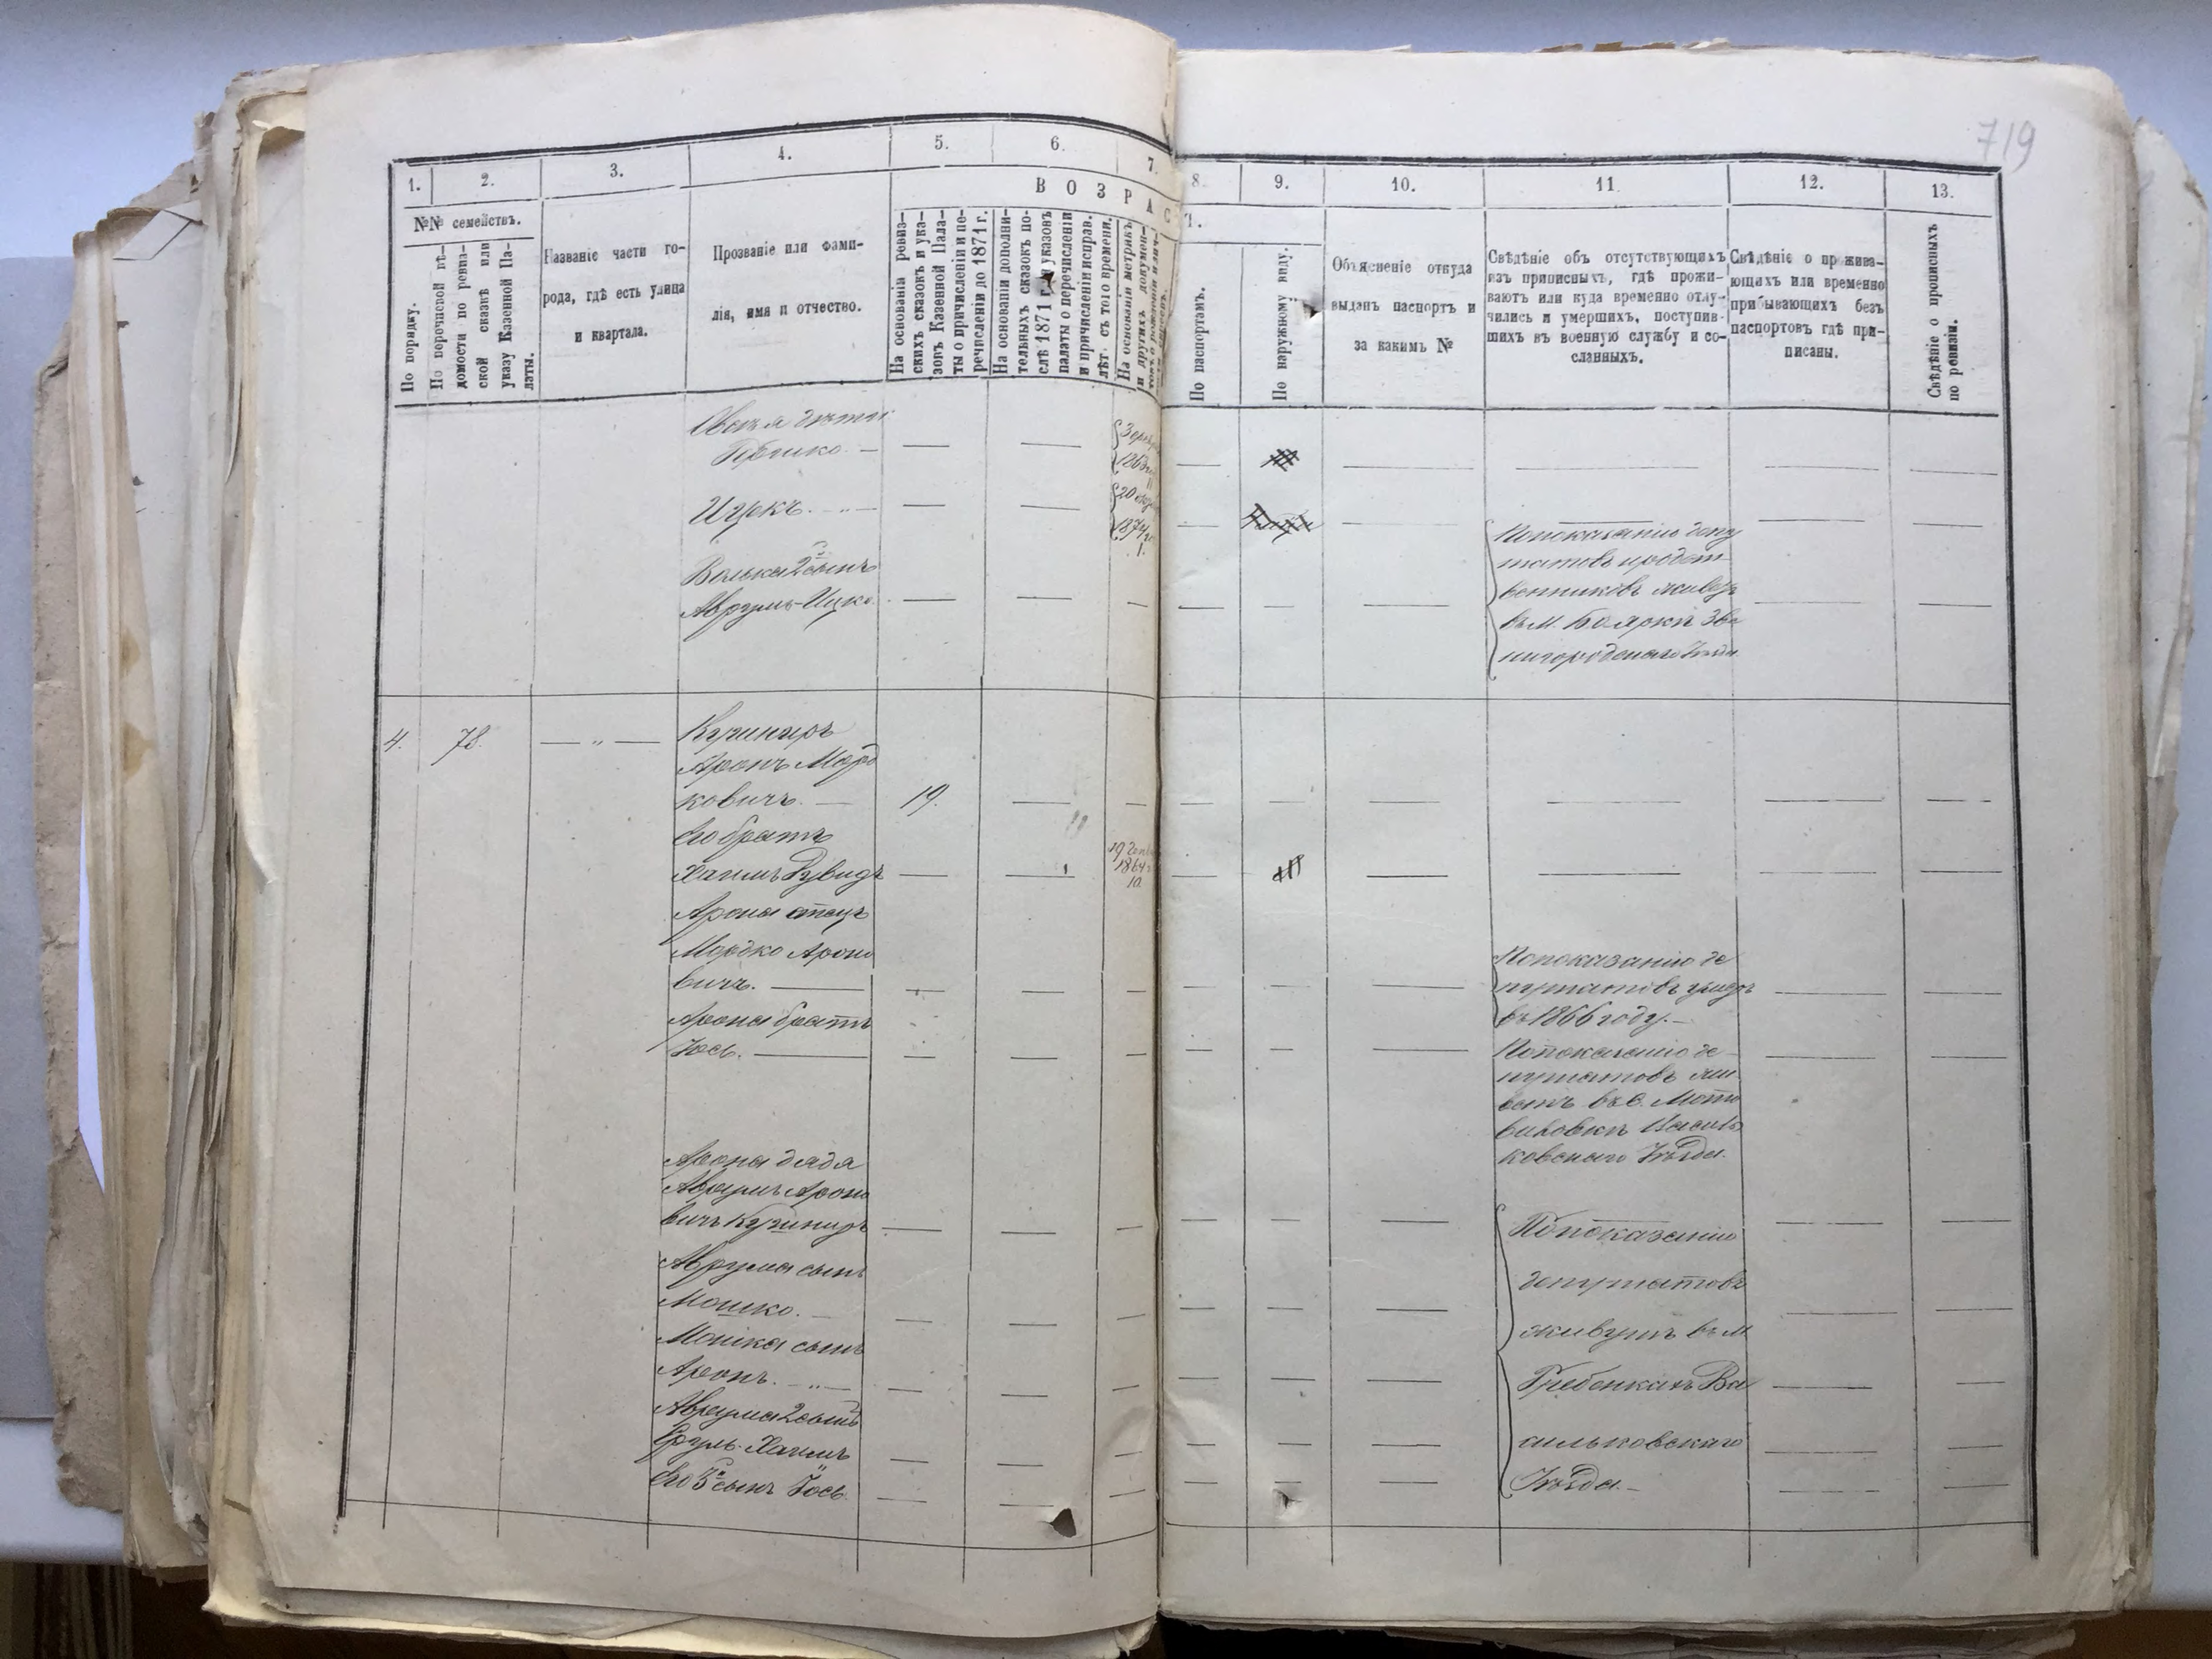 719
1.
2.
3.
4.
5.
6.
7.
8.
9.
10.
11.
12.
13.
ВОЗРАС
Т.
№№ семействъ.
По порядку.
По перочнской вѣ-
домости по ревиз-
ской сказкѣ или
указу Казенной Па-
латы.
Названіе части го-
рода, гдѣ есть улица
и квартала.
Прозваніе или фами-
лія, имя и отчество.
На основаніи ревиз-
скихъ сказокъ и ука-
зовъ Казенной Пала-
ты о причисленіи и пе-
речисленіи до 1871 г.
На основаніи дополни-
тельныхъ сказокъ по-
слѣ 1871 г. и указовъ
палаты о перечисленіи
и причисленіи исправ.
лѣт. съ того времени.
На основаніи метрикъ
и другихъ докумен-
По паспортамъ.
По наружному виду.
Объясненіе откуда
выданъ паспортъ и
за какимъ №
Свѣдѣніе объ отсутствующихъ
изъ приписныхъ, гдѣ прожи-
ваютъ или куда временно отлу-
чились и умершихъ, поступив-
шихъ въ военную службу и со-
сланныхъ.
Свѣдѣніе о прожива-
ющихъ или временно
прибывающихъ безъ
паспортовъ гдѣ при-
писаны.
Свѣдѣніе о прописныхъ
по ревизіи.
Овсѣя дѣти
Гершко. —
Ицекъ. - „ -
20
1874
1.
Волька 2й сынъ
Аврумъ-Ицко.
По показанію депу
татовъ и родст-
венниковъ живетъ
въ м. Бояркѣ Зве
нигородскаго Уѣзда
4.
78.
— „ —
Кушниръ
Аронъ Морд
ковичъ. —
19.
Его братъ
Хаимъ Дувидъ
19
1864
10
Арона отецъ
Мордко Ароно
вичъ. —
По показанію де
путатовъ умеръ
въ 1866 году. —
Арона братъ
Іось. —
По показанію де-
путатовъ жи-
ветъ въ с. Мото
виловкѣ Василь
ковскаго Уѣзда.
Арона дядя
Аврумъ Ароно
вичъ Кушниръ
Аврума сынъ
Мошко. —
Мошка сынъ
Аронъ. - „ -
Аврума 2й сынъ
Сруль-Хаимъ
Его 3й сынъ Іось.
По показанію
депутатовъ
живутъ въ м.
Гребенкахъ Ва
сильковскаго
Уѣзда. —